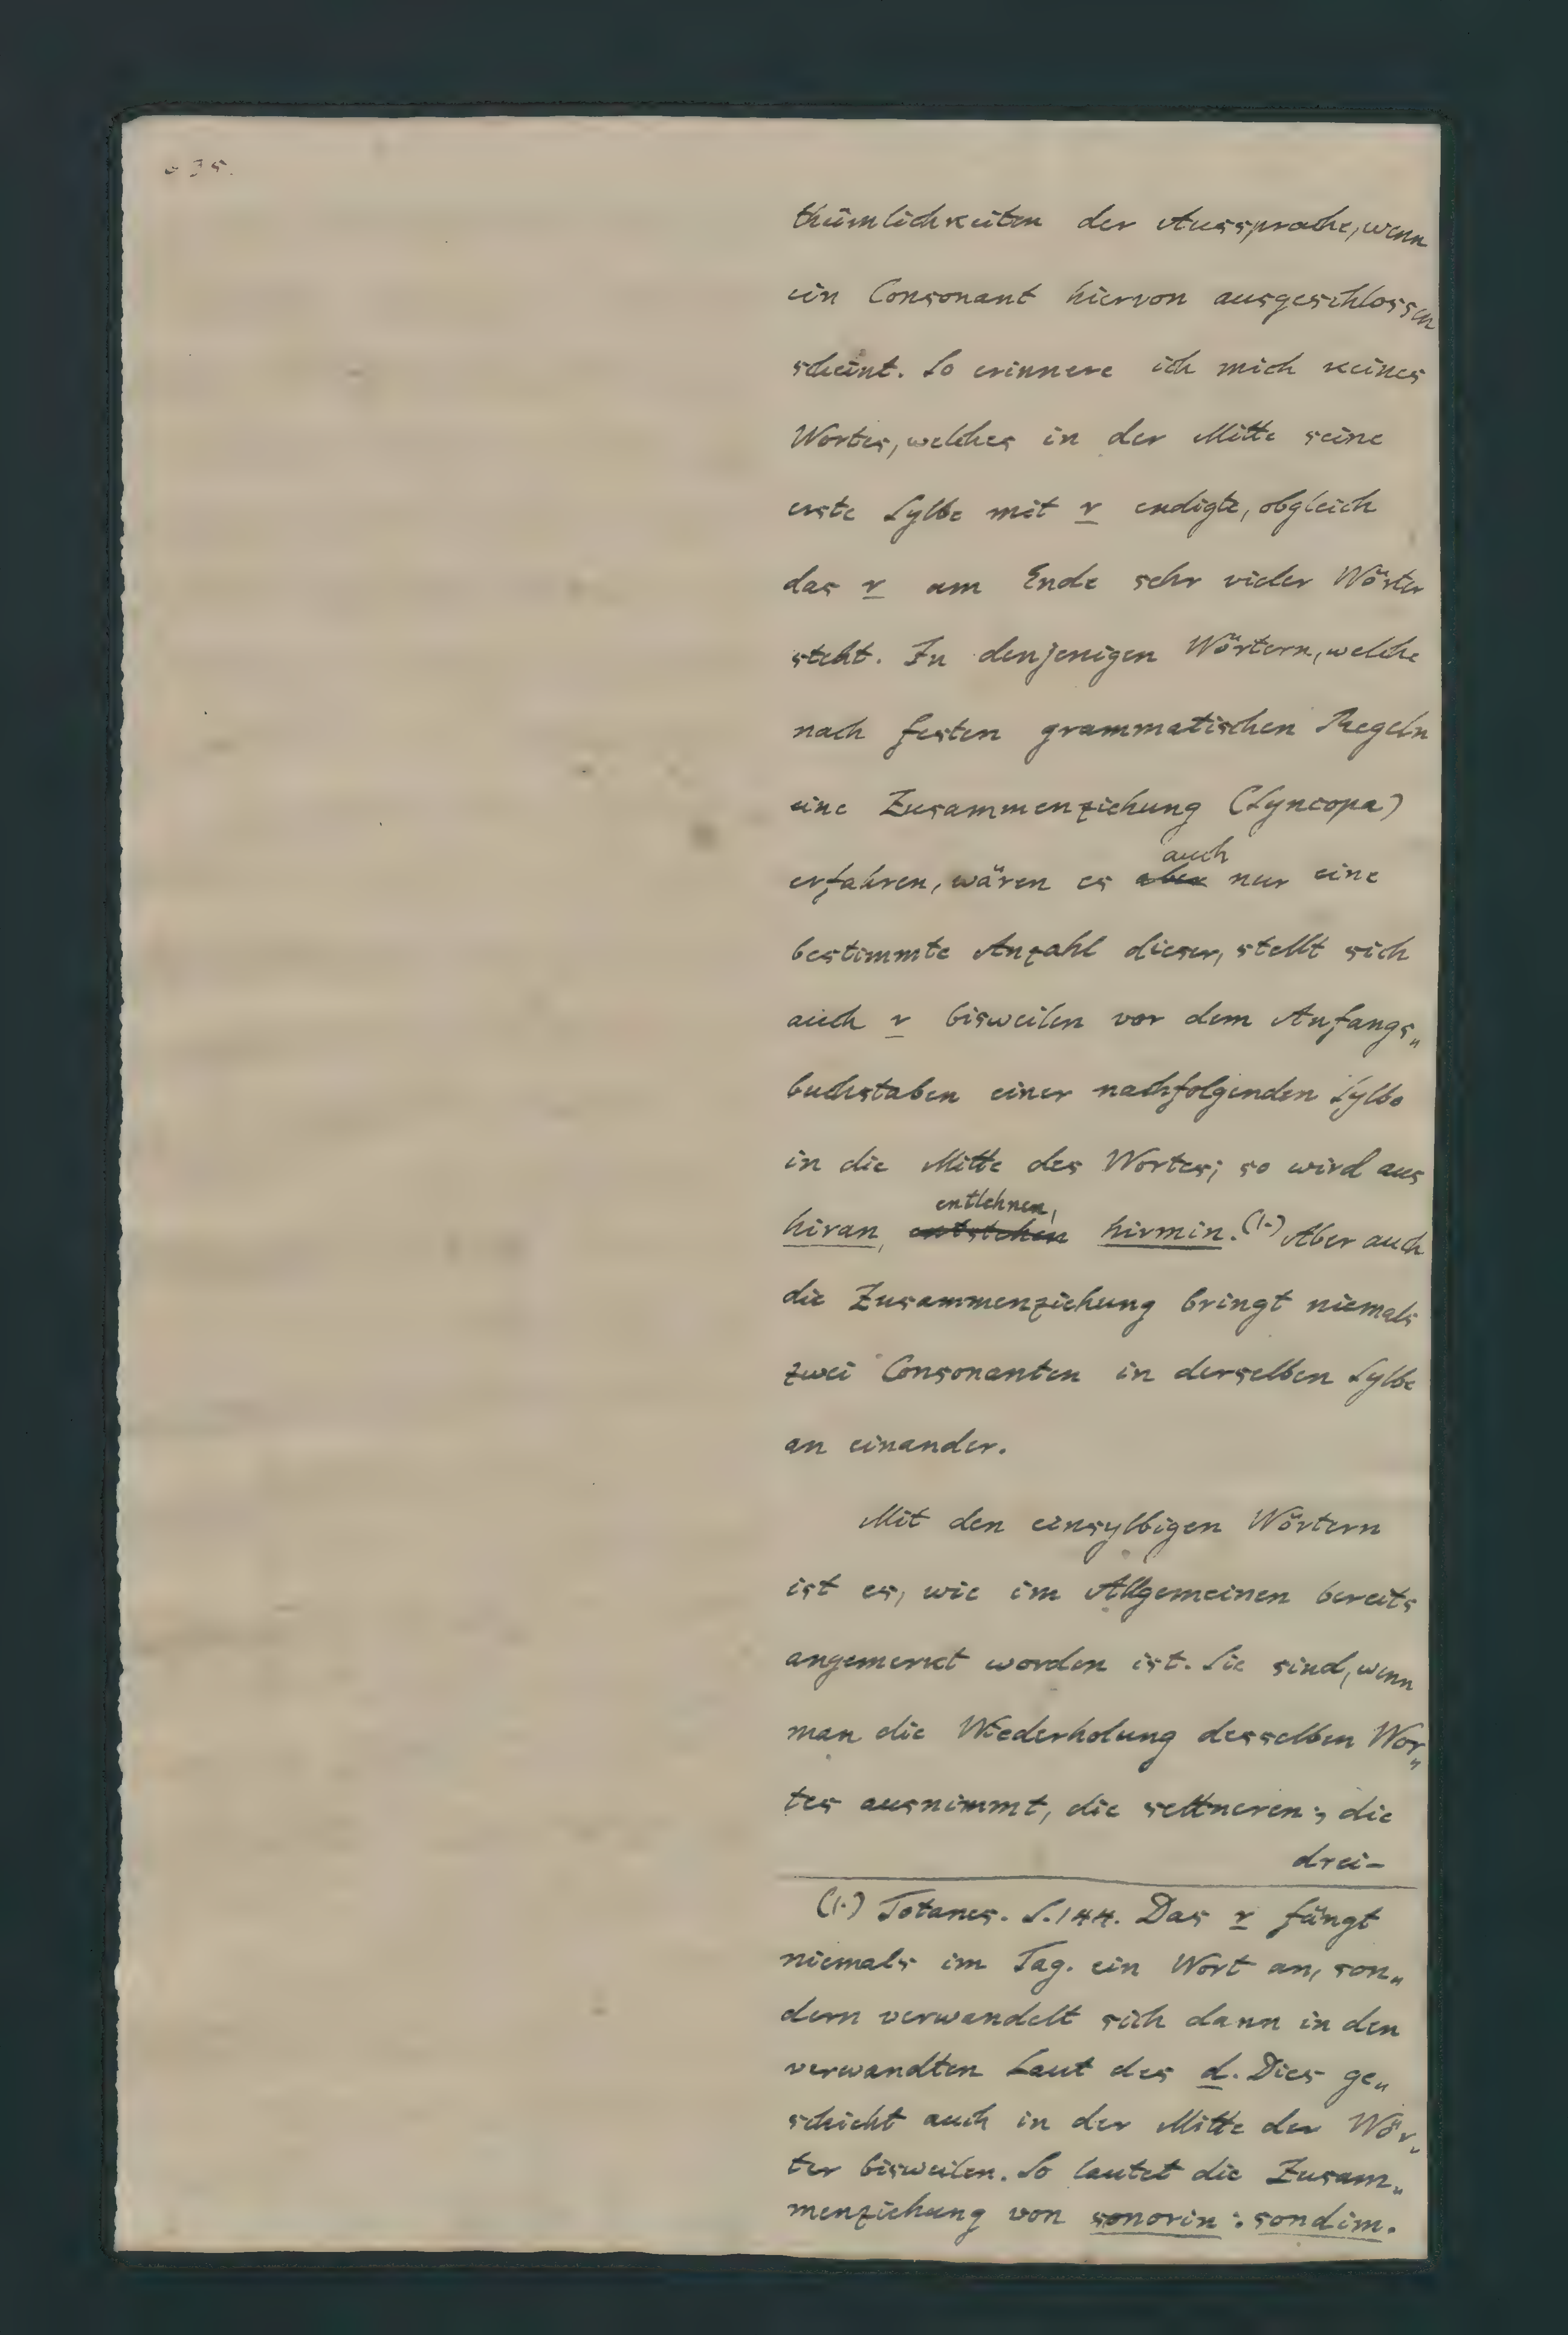 35.
thümlichkeiten der Aussprache, wenn
ein Consonant hiervon ausgeschlossen
scheint. So erinnere ich mich keines
Wortes, welches in der Mitte seine
erste Sylbe mit r endigte, obgleich
das r am Ende sehr vieler Wörter
steht. In denjenigen Wörtern, welche
nach festen grammatischen Regeln
eine Zusammenziehung (Syncopa)
auch
erfahren, wären es aber nur eine
bestimmte Anzahl dieser, stellt sich
auch r bisweilen vor dem Anfangs„
buchstaben einer nachfolgenden Sylbe
in die Mitte des Wortes; so wird aus
entlehnen,
hiran, entstehen hirmin. (1.) Aber auch
die Zusammenziehung bringt niemals
zwei Consonanten in derselben Sylbe
an einander.
Mit den einsylbigen Wörtern
ist es, wie im Allgemeinen bereits
angemerkt worden ist. Sie sind, wenn
man die Wiederholung desselben Wor„
tes ausnimmt, die seltneren; die
drei-
(1.) Totanes. S. 144. Das r fängt
niemals im Tag. ein Wort an, son„
dern verwandelt sich dann in den
verwandten Laut des d. Dies ge„
schieht auch in der Mitte der Wör„
ter bisweilen. So lautet die Zusam„
menziehung von sonorin : sondim.